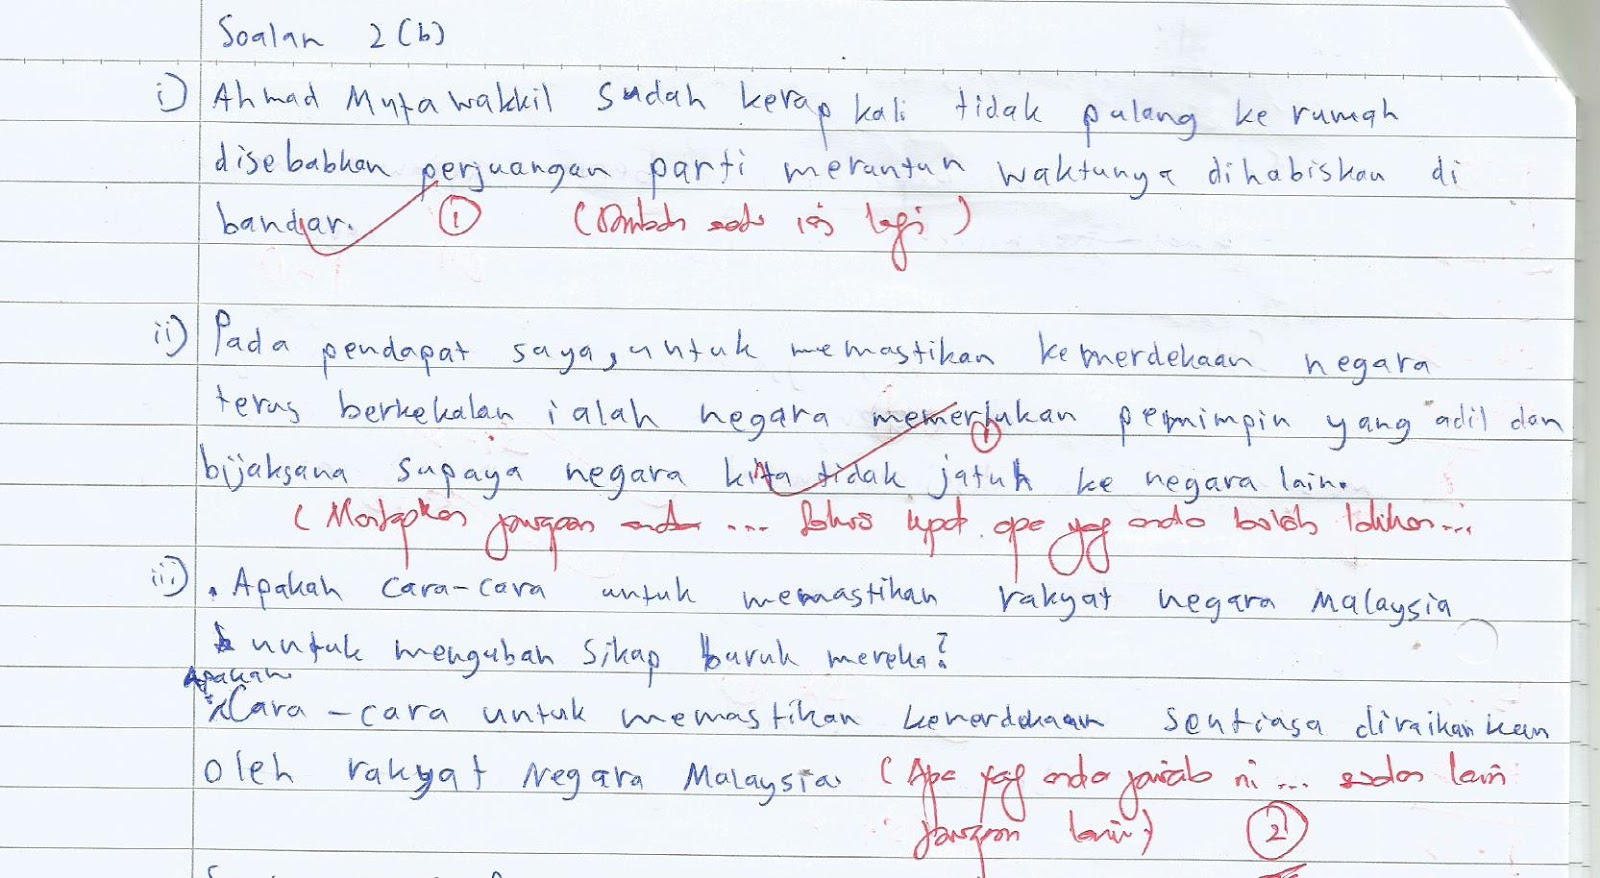 Soalan 2(b)
i) Ahmad Mutawakkil sudah kerap kali tidak pulang ke rumah
disebabkan perjuangan parti meruntun waktunya dihabiskan di
bandar. 1 (Tambah satu isi lagi)
ii) Pada pendapat saya, untuk memastikan kemerdekaan negara
terus berkekalan ialah negara memerlukan pemimpin yang adil dan
1
bijaksana supaya negara kita tidak jatuh ke negara lain.
(Mantapkan jawapan anda ... fokus apa yg anda boleh lakukan...
iii) . Apakah cara-cara untuk memastikan rakyat negara Malaysia
untuk mengubah sikap buruk mereka?
Apakah
Cara-cara untuk memastikan kemerdekaan sentiasa diraikan
oleh rakyat Negara Malaysia. (Apa yg anda jawab ni ... soalan lain
jawapan lain) 2